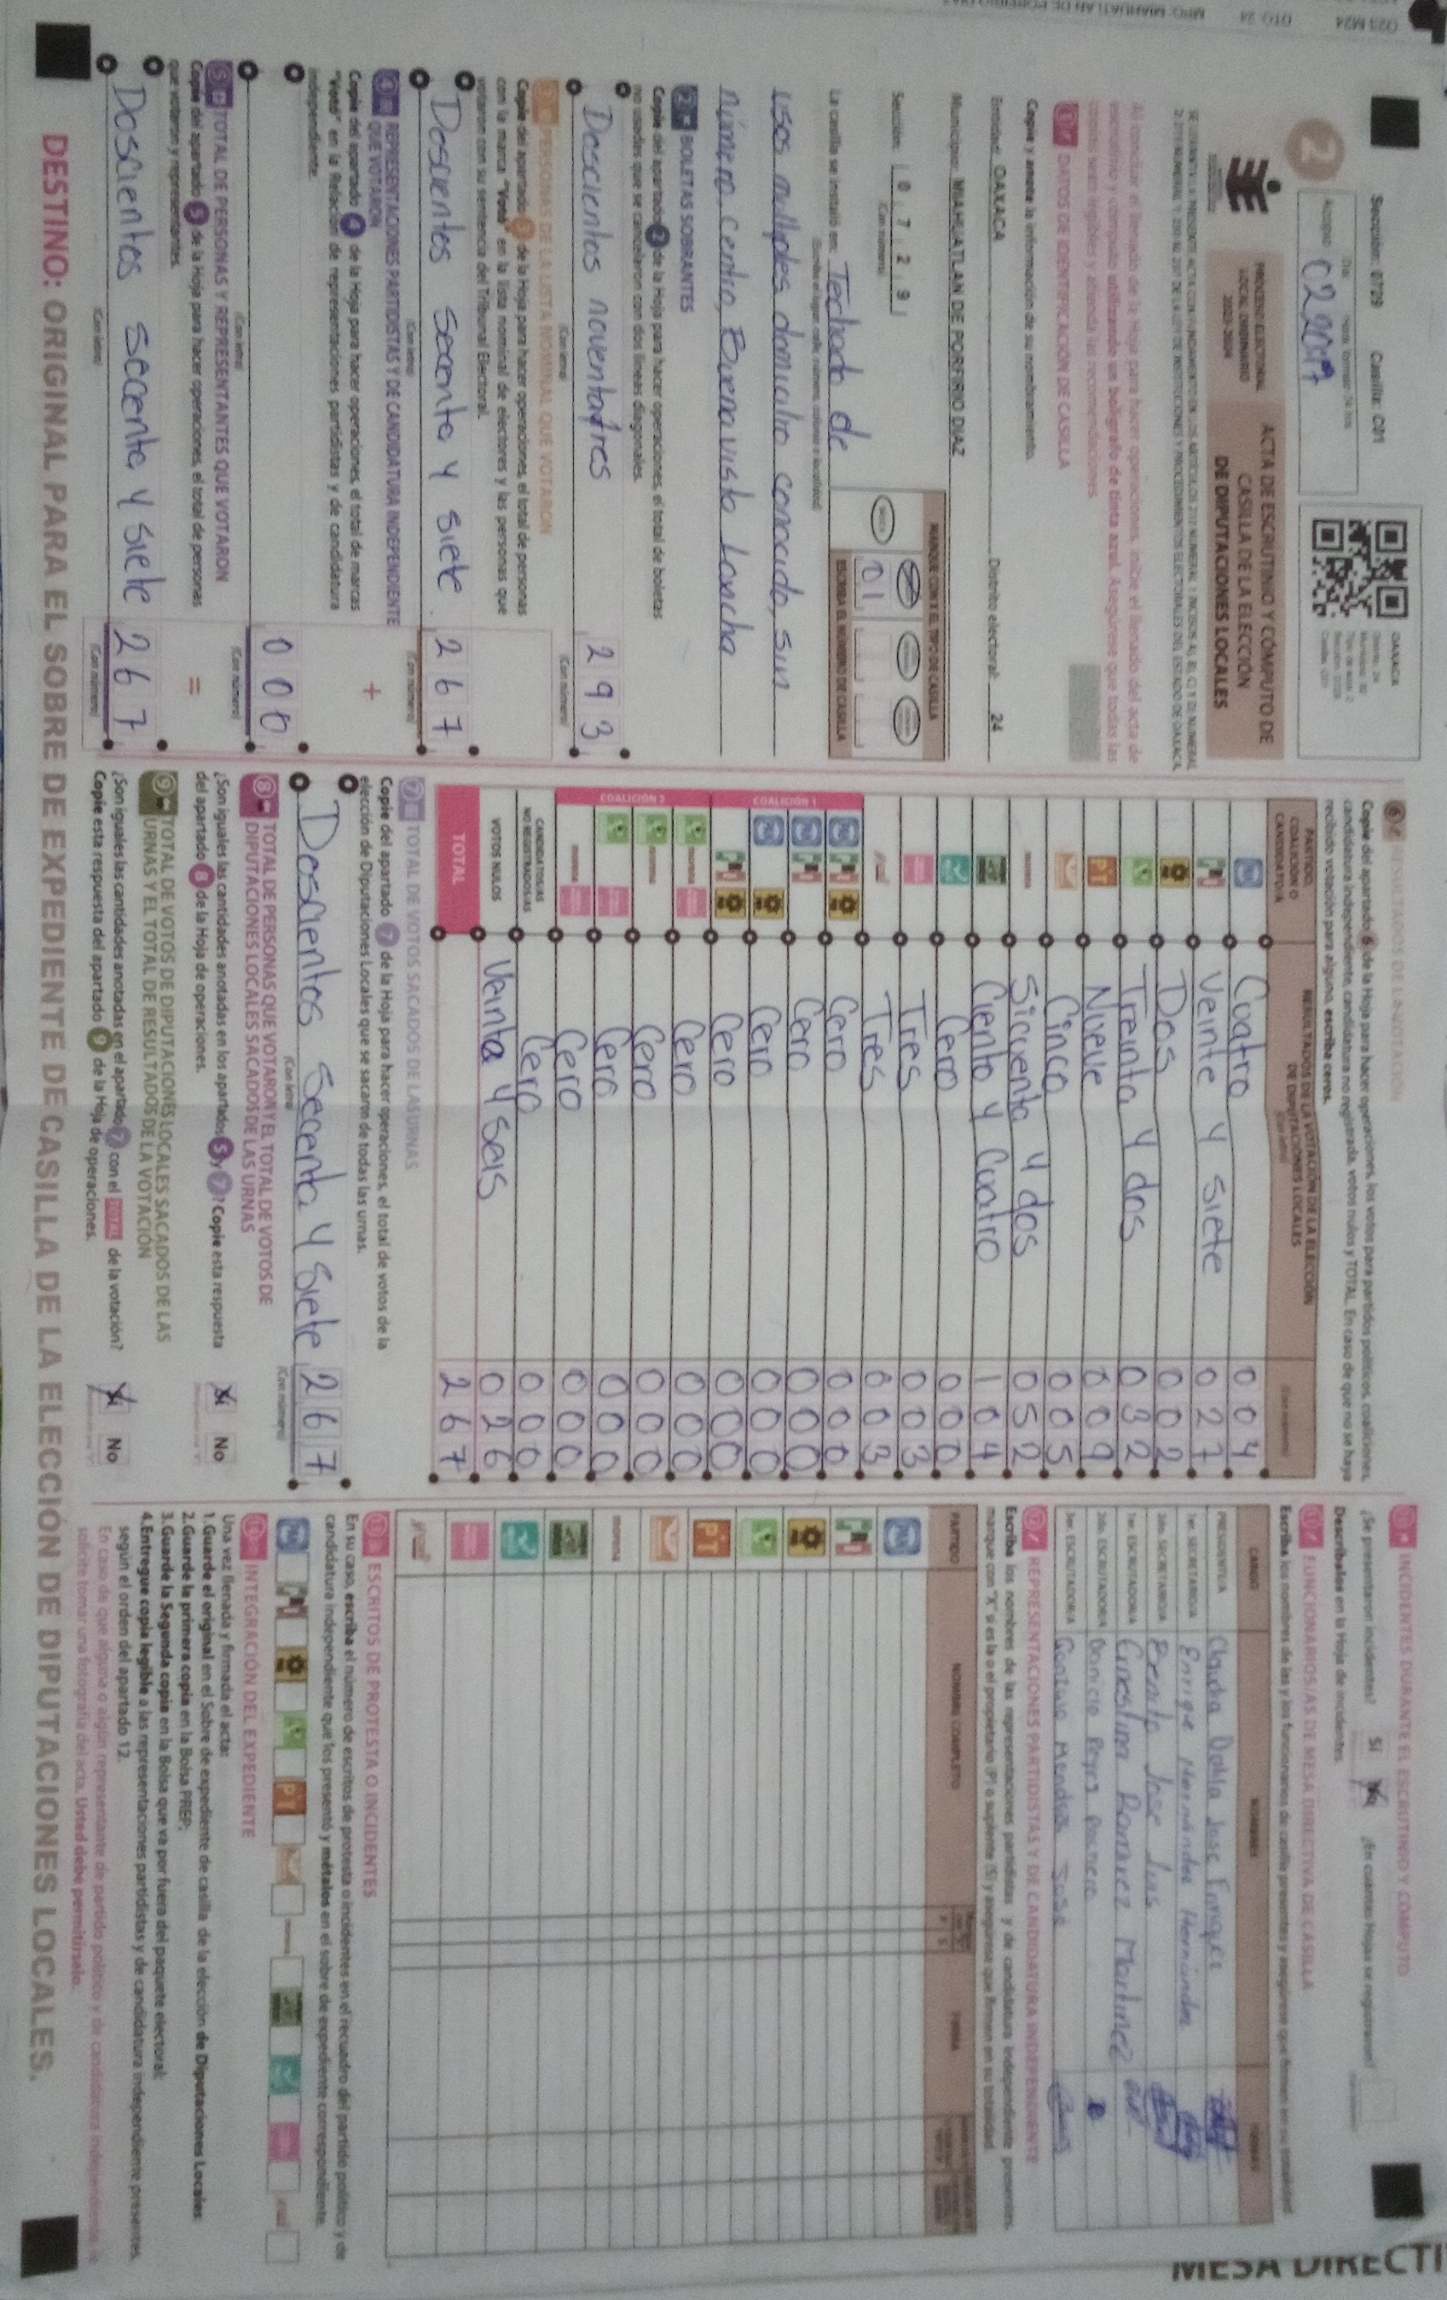 Sección: 0729 Casilla: C01
Acopio: 022019
OAXACA
2
PROCESO ELECTORAL
LOCAL ORDINARIO
2023-2024
ACTA DE ESCRUTINIO Y CÓMPUTO DE
CASILLA DE LA ELECCIÓN
DE DIPUTACIONES LOCALES
Al concluir el llenado de la Hoja para hacer operaciones, inicie el llenado del acta de
escrutinio y cómputo utilizando un bolígrafo de tinta azul. Asegúrese que todas las
copias sean legibles y atienda las recomendaciones.
1 DATOS DE IDENTIFICACIÓN DE CASILLA
Copie y anote la información de su nombramiento.
Entidad: OAXACA Distrito electoral: 24
Municipio: MIAHUATLAN DE PORFIRIO DIAZ
Sección: 0 7 2 9
(Con número)
MARQUE CON X EL TIPO DE CASILLA
ESCRIBA EL NÚMERO DE CASILLA
01
La casilla se instaló en: Techado de
(Escriba el lugar: calle, número, colonia o localidad)
usos multiples, domicilio conocido, sin
número, Centro, Buenavista Loxicha
2 BOLETAS SOBRANTES
Copie del apartado 2 de la Hoja para hacer operaciones, el total de boletas
no usadas que se cancelaron con dos líneas diagonales.
Doscientos noventaitres 293
(Con letra) (Con número)
3 PERSONAS DE LA LISTA NOMINAL QUE VOTARON
Copie del apartado 3 de la Hoja para hacer operaciones, el total de personas
con la marca "Votó" en la lista nominal de electores y las personas que
votaron con su sentencia del Tribunal Electoral.
Doscientos secenta y siete 267
(Con letra) (Con número)
4 REPRESENTACIONES PARTIDISTAS Y DE CANDIDATURA INDEPENDIENTE
QUE VOTARON
Copie del apartado 4 de la Hoja para hacer operaciones, el total de marcas
"Votó" en la Relación de representaciones partidistas y de candidatura
independiente.
+
000
(Con letra) (Con número)
5 TOTAL DE PERSONAS Y REPRESENTANTES QUE VOTARON
Copie del apartado 5 de la Hoja para hacer operaciones, el total de personas
que votaron y representantes.
=
Doscientos secenta y siete 267
(Con letra) (Con número)
6 RESULTADOS DE LA VOTACIÓN
Copie del apartado 6 de la Hoja para hacer operaciones, los votos para partidos políticos, coaliciones,
candidatura independiente, candidatura no registrada, votos nulos y TOTAL. En caso de que no se haya
recibido votación para alguno, escriba ceros.
PARTIDO,
COALICIÓN O
CANDIDATURA
RESULTADOS DE LA VOTACIÓN DE LA ELECCIÓN
DE DIPUTACIONES LOCALES
(Con letra)
Cuatro 004
Veinte y siete 027
Dos 002
Treinta y dos 032
PT Nueve 009
Cinco 005
morena Sicuenta y dos 052
Ciento y Cuatro 104
Cero 000
Tres 003
Tres 003
COALICIÓN 1
Cero 000
Cero 000
Cero 000
Cero 000
COALICIÓN 2
morena Cero 000
morena Cero 000
Cero 000
morena Cero 000
CANDIDATOS/AS
NO REGISTRADOS/AS Cero 000
VOTOS NULOS Veinta y seis 026
TOTAL 267
7 TOTAL DE VOTOS SACADOS DE LAS URNAS
Copie del apartado 7 de la Hoja para hacer operaciones, el total de votos de la
elección de Diputaciones Locales que se sacaron de todas las urnas.
Doscientos secenta y siete 267
(Con letra) (Con número)
8 TOTAL DE PERSONAS QUE VOTARON Y EL TOTAL DE VOTOS DE
DIPUTACIONES LOCALES SACADOS DE LAS URNAS
¿Son iguales las cantidades anotadas en los apartados 5 y 7? Copie esta respuesta
del apartado 8 de la Hoja de operaciones.
Sí No
9 TOTAL DE VOTOS DE DIPUTACIONES LOCALES SACADOS DE LAS
URNAS Y EL TOTAL DE RESULTADOS DE LA VOTACIÓN
¿Son iguales las cantidades anotadas en el apartado 7 con el TOTAL de la votación?
Copie esta respuesta del apartado 9 de la Hoja de operaciones.
Sí No
10 INCIDENTES DURANTE EL ESCRUTINIO Y CÓMPUTO
¿Se presentaron incidentes? Sí No ¿En cuántas Hojas se registraron?
Descríbalos en la Hoja de incidentes.
11 FUNCIONARIOS/AS DE MESA DIRECTIVA DE CASILLA
CARGO NOMBRES FIRMAS
PRESIDENTE/A
1er. SECRETARIO/A Enrique Hernández Hernández
2do. SECRETARIO/A Benito Jose Luis
1er. ESCRUTADOR/A Ernestina Ramirez Martinez
2do. ESCRUTADOR/A
3er. ESCRUTADOR/A
12 REPRESENTACIONES PARTIDISTAS Y DE CANDIDATURA INDEPENDIENTE
Escriba los nombres de las representaciones partidistas y de candidatura independiente presentes,
marque con "X" si es la o el propietario (P) o suplente (S) y asegúrese que firmen en su totalidad.
PARTIDO NOMBRE COMPLETO FIRMA
PT
morena
13 ESCRITOS DE PROTESTA O INCIDENTES
En su caso, escriba el número de escritos de protesta o incidentes en el recuadro del partido político y de
candidatura independiente que los presentó y métalos en el sobre de expediente correspondiente.
PT
14 INTEGRACIÓN DEL EXPEDIENTE
Una vez llenada y firmada el acta:
1. Guarde el original en el Sobre de expediente de casilla de la elección de Diputaciones Locales.
2. Guarde la primera copia en la Bolsa PREP;
3. Guarde la Segunda copia en la Bolsa que va por fuera del paquete electoral;
4. Entregue copia legible a las representaciones partidistas y de candidatura independiente presentes,
según el orden del apartado 12.
En caso de que alguna o algún representante de partido político y de candidatura independiente, le
solicite tomar una fotografía del acta, Usted debe permitírselo.
DESTINO: ORIGINAL PARA EL SOBRE DE EXPEDIENTE DE CASILLA DE LA ELECCIÓN DE DIPUTACIONES LOCALES.
MESA DIRECTI